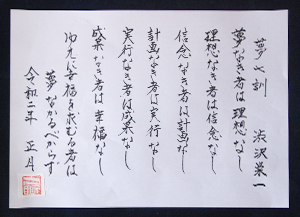 夢七訓 渋沢栄一
夢なき者は理想なし
理想なき者は信念なし
信念なき者は計画なし
計画なき者は実行なし
実行なき者は成果なし
成果なき者は幸福なし
ゆえに幸福を求むる者は
夢なかるべからず
令和二年 正月